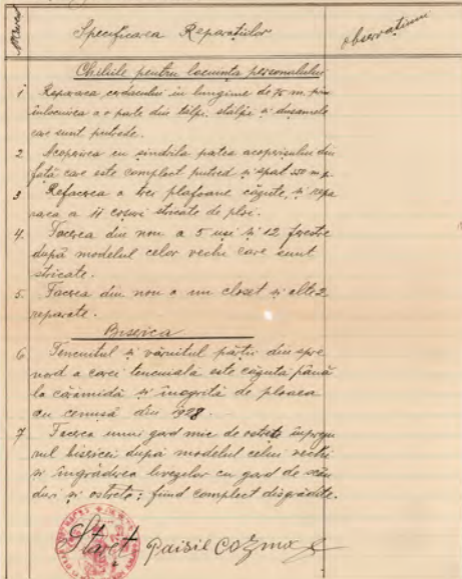 Specificarea Reparațiilor
observațiuni
Chiliile pentru locuința personalului
1 Repararea cerdacului în lungime de 75 m. prin
înlocuirea a o parte din tălpi, stâlpi și dușamele
cari sunt putrede.
2 Acoperirea cu șindrila partea acoperișului din
față care este complect putred și spat 250 m.p.
3 Refacerea a trei plafoane căzute, și repa
rarea a 11 coșuri stricate de ploi.
4. Facerea din nou a 5 uși și 12 ferestre
după modelul celor vechi care sunt
stricate.
5. Facerea din nou a un closet și alte 2
reparate.
Biserica
6 Tencuitul și văruitul părții din spre
nord a carei tencuiala este căzută până
la cărămidă și înegrită de ploaea
cu cenușă din 1928.
7 Facerea unui gard mic de ostrete împreju
rul bisericei după modelul celui vechi
și îngrădirea livezilor cu gard de scân
duri și ostrete; fiind complect disgrădite.
Stareț Paisie Cozma